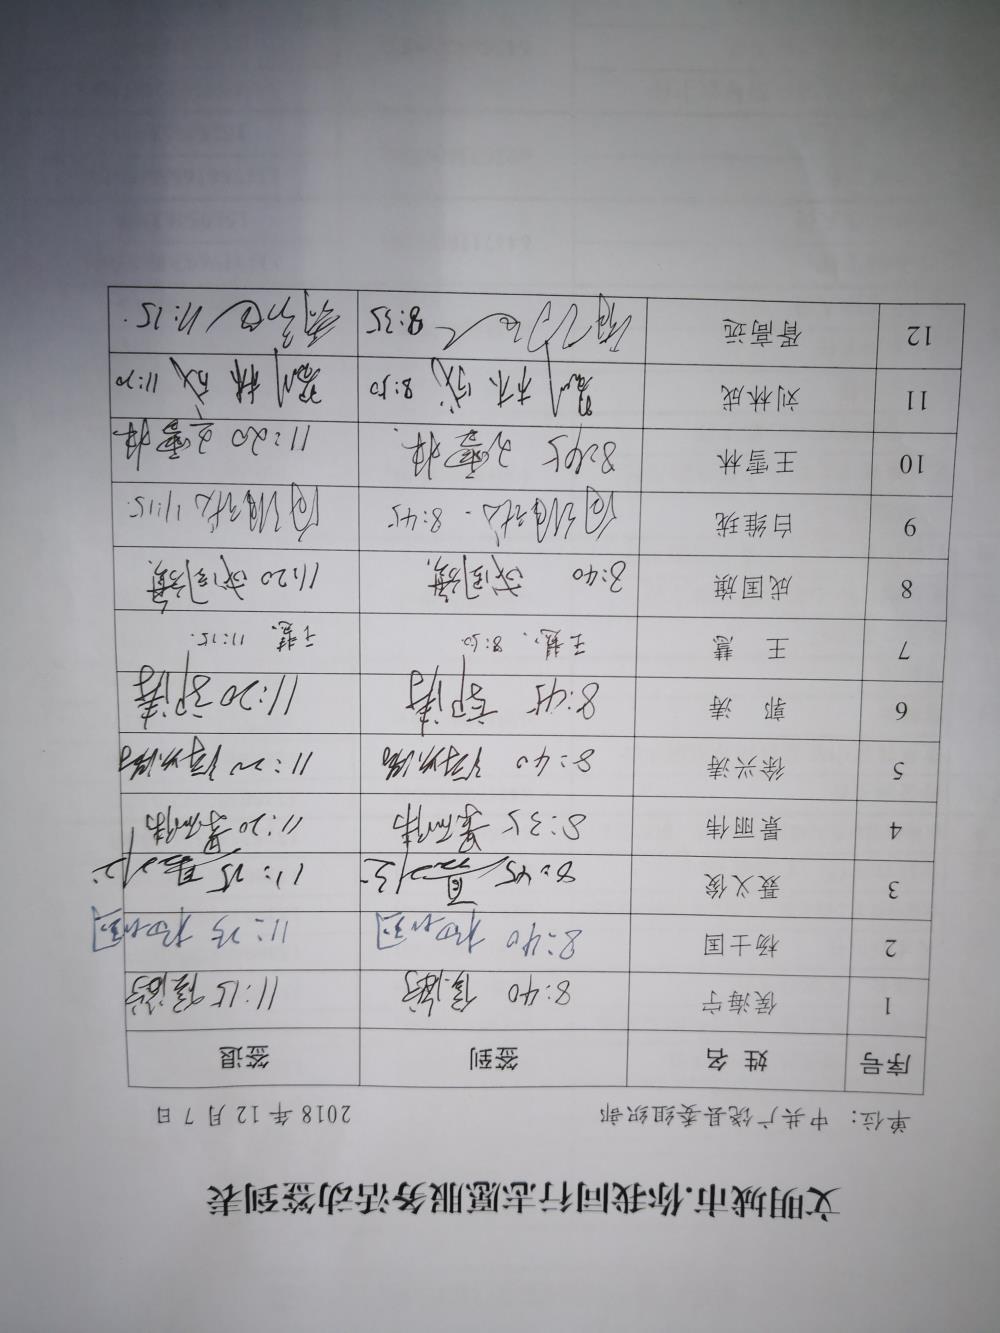 文明城市.你我同行志愿服务活动签到表
单位：中共广饶县委组织部 2018年12月7日
序号 姓名 签到 签退
1 侯海宁 8:40 11:15
2 杨士国 8:40 11:15
3 聂义俊 8:45 11:15
4 景丽伟 8:35 景丽伟 11:20 景丽伟
5 徐兴涛 8:40 徐兴涛 11:20 徐兴涛
6 郭涛 8:45 郭涛 11:20 郭涛
7 王慧 王慧 8:50 王慧 11:15
8 成国旗 8:40 成国旗 11:20 成国旗
9 白维珑 白维珑 8:45 白维珑 11:15
10 王雪林 8:45 王雪林 11:20 王雪林
11 刘林成 刘林成 8:50 刘林成 11:20
12 胥高远 8:35 11:15